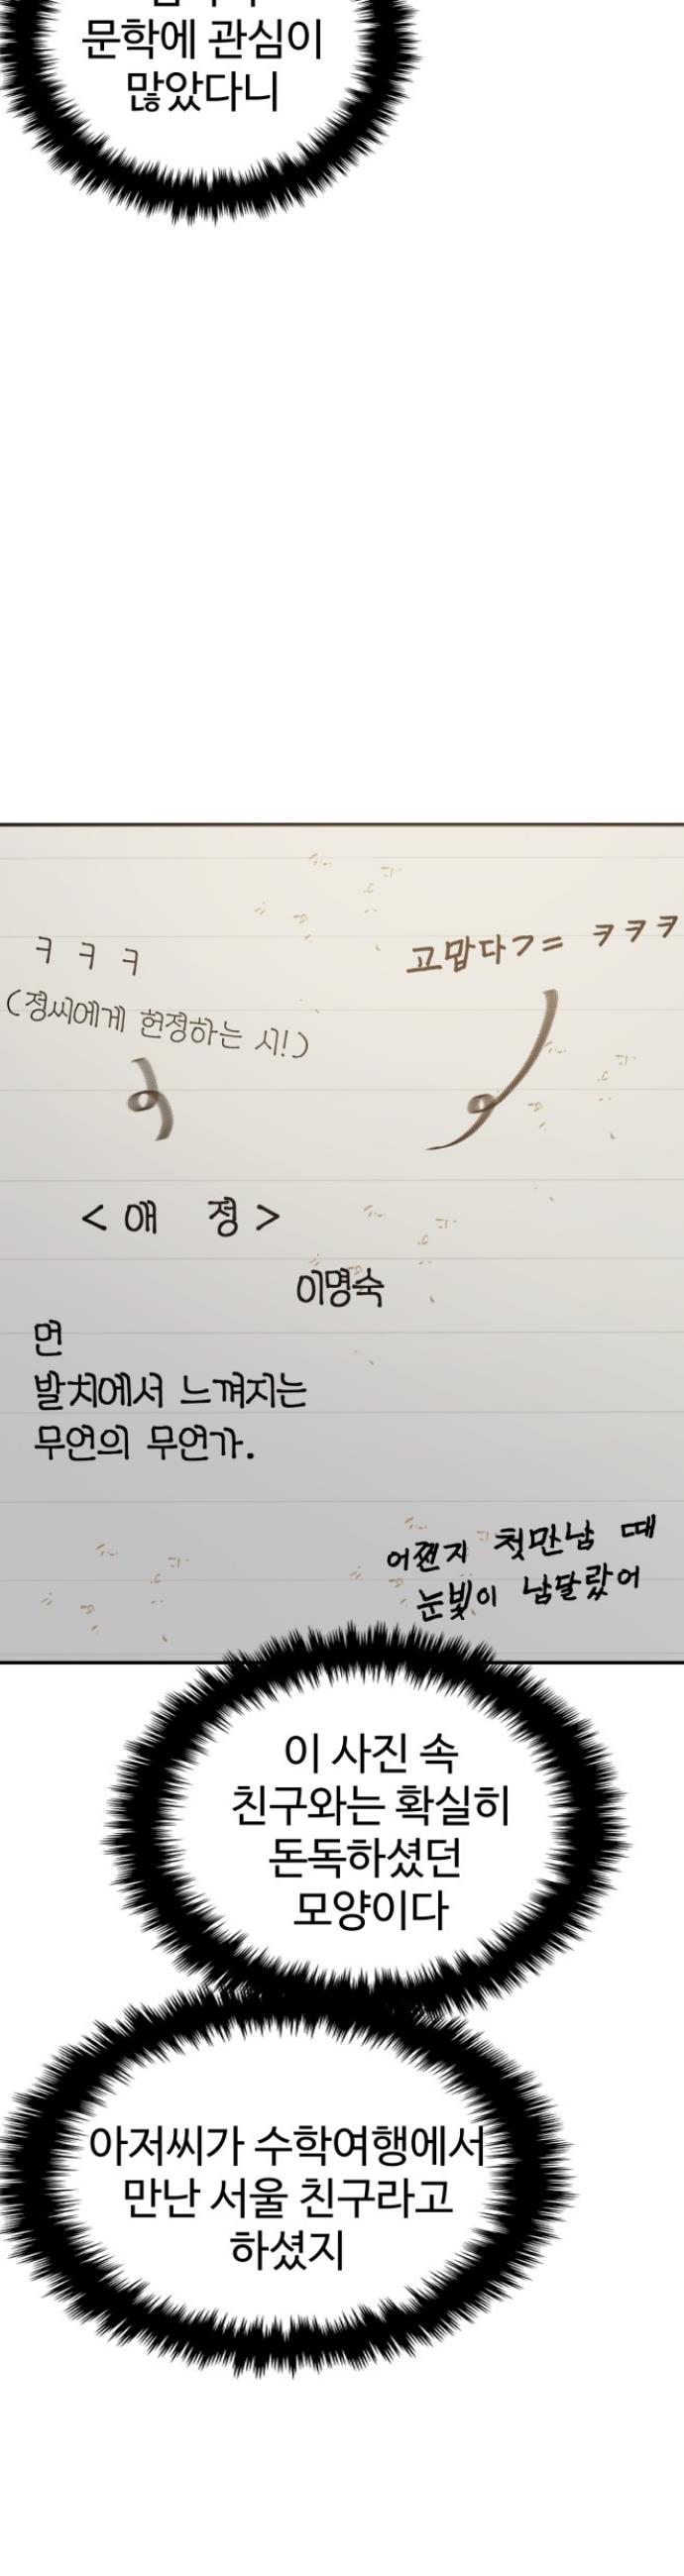 문학에 관심이
많았다니
ㅋ ㅋ ㅋ
(졍씨에게 헌정하는 시!)
고맙다ㄱ= ㅋㅋㅋ
< 애 졍 >
이명숙
먼
발치에서 느껴지는
무언의 무언가.
어쩐지 첫만남 때
눈빛이 남달랐어
이 사진 속
친구와는 확실히
돈독하셨던
모양이다
아저씨가 수학여행에서
만난 서울 친구라고
하셨지